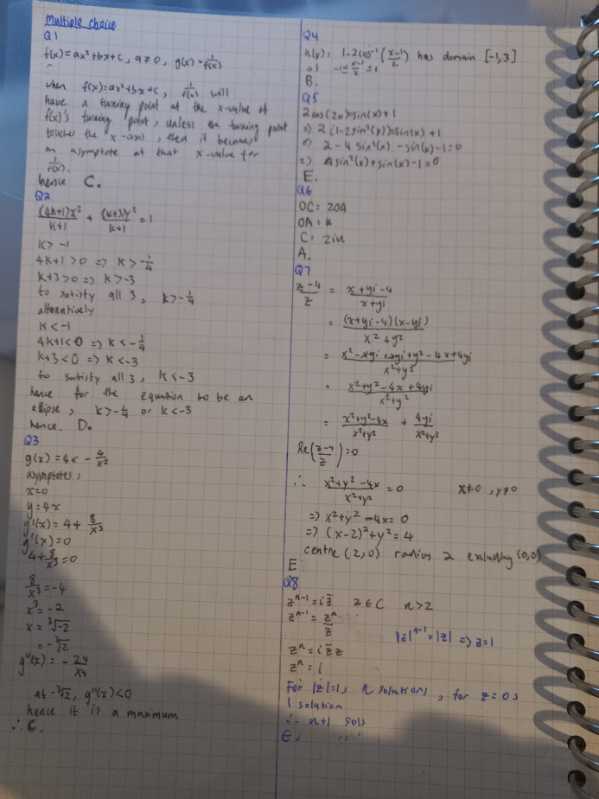 Multiple choice
Q1
f(x) = ax² + bx + c, a ≠ 0, g(x) = 1/f(x)
when f(x) = ax² + bx + c, 1/f(x) will
have a turning point at the x-value of
f(x)'s turning point, unless the turning point
touches the x-axis, then it becomes
an asymptote at that x-value for
1/f(x).
hence C.
Q2
(4k+1)x²/k+1 + (k+3)y²/k+1 = 1
k > -1
4k+1 > 0 => k > -1/4
k+3 > 0 => k > -3
to satisfy all 3, k > -1/4
alternatively
k < -1
4k+1 < 0 => k < -1/4
k+3 < 0 => k < -3
to satisfy all 3, k < -3
hence for the equation to be an
ellipse, k > -1/4 or k < -3
hence D.
Q3
g(x) = 4x - 4/x²
asymptotes:
x=0
y = 4x
g'(x) = 4 + 8/x³
g'(x) = 0
4 + 8/x³ = 0
8/x³ = -4
x³ = -2
x = ³√-2
= -³√2
g''(x) = - 24/x⁴
at -³√2, g''(x) < 0
hence it is a maximum
∴ C.
Q4
1-2cos⁻¹(x-1/2) has domain [-1,3]
B.
Q5
2cos(2x) = sin(x) + 1
=> 2(1-2sin²(x)) = sin(x) + 1
=> 2 - 4sin²(x) - sin(x) - 1 = 0
=> 4sin²(x) + sin(x) - 1 = 0
E.
Q6
OC = 2OA
OA = u
C = 2iu
A.
Q7
z-4/z = x+yi-4/x+yi
= (x+yi-4)(x-yi)/x²+y²
= x²-xyi+xyi+y²-4x+4yi/x²+y²
= x²+y²-4x+4yi/x²+y²
= x²+y²-4x/x²+y² + 4yi/x²+y²
Re(z-4/z) = 0
∴ x²+y²-4x/x²+y² = 0 x≠0, y≠0
=> x²+y²-4x = 0
=> (x-2)²+y² = 4
centre (2,0) radius 2 excluding (0,0)
E
Q8
zⁿ⁻¹ = i z̄ z ∈ C n > 2
zⁿ⁻¹ = zⁿ/z
|z|ⁿ⁻¹ = |z| => z = 1
zⁿ = i z̄ z
zⁿ = i
For |z|=1, n solutions, for z = 0,
1 solution
∴ n+1 sols
E.